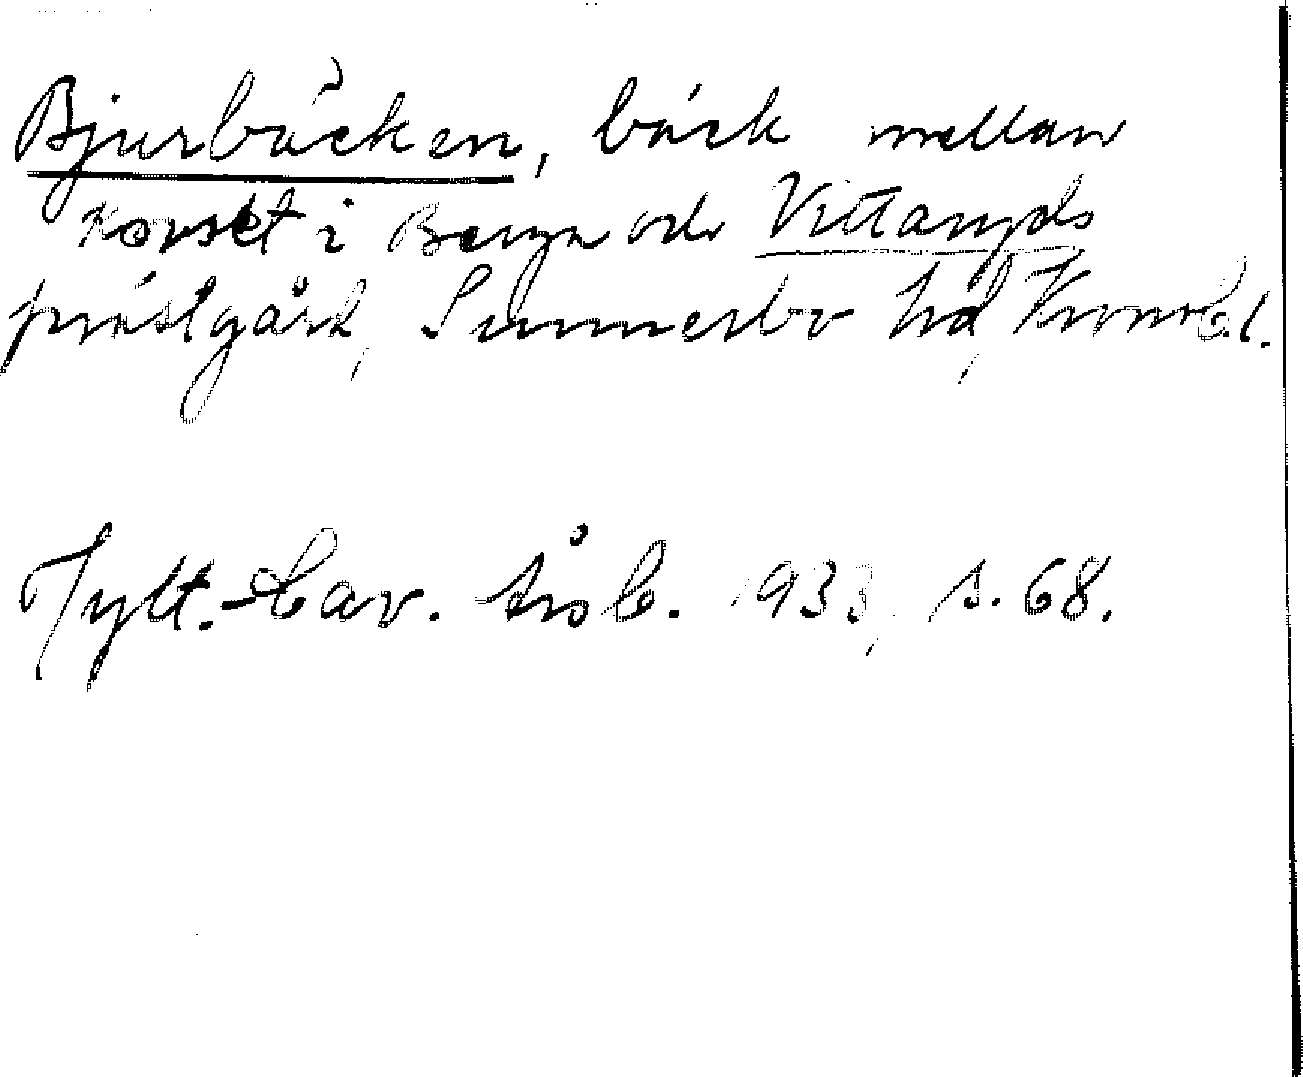 Bjurbäcken, bäck mellan
Korset i Berga och Vittaryds
prästgård, Sunnerbo hd, Kronob. l.
Hylt.-Cav. årsb. 1933, s. 68.